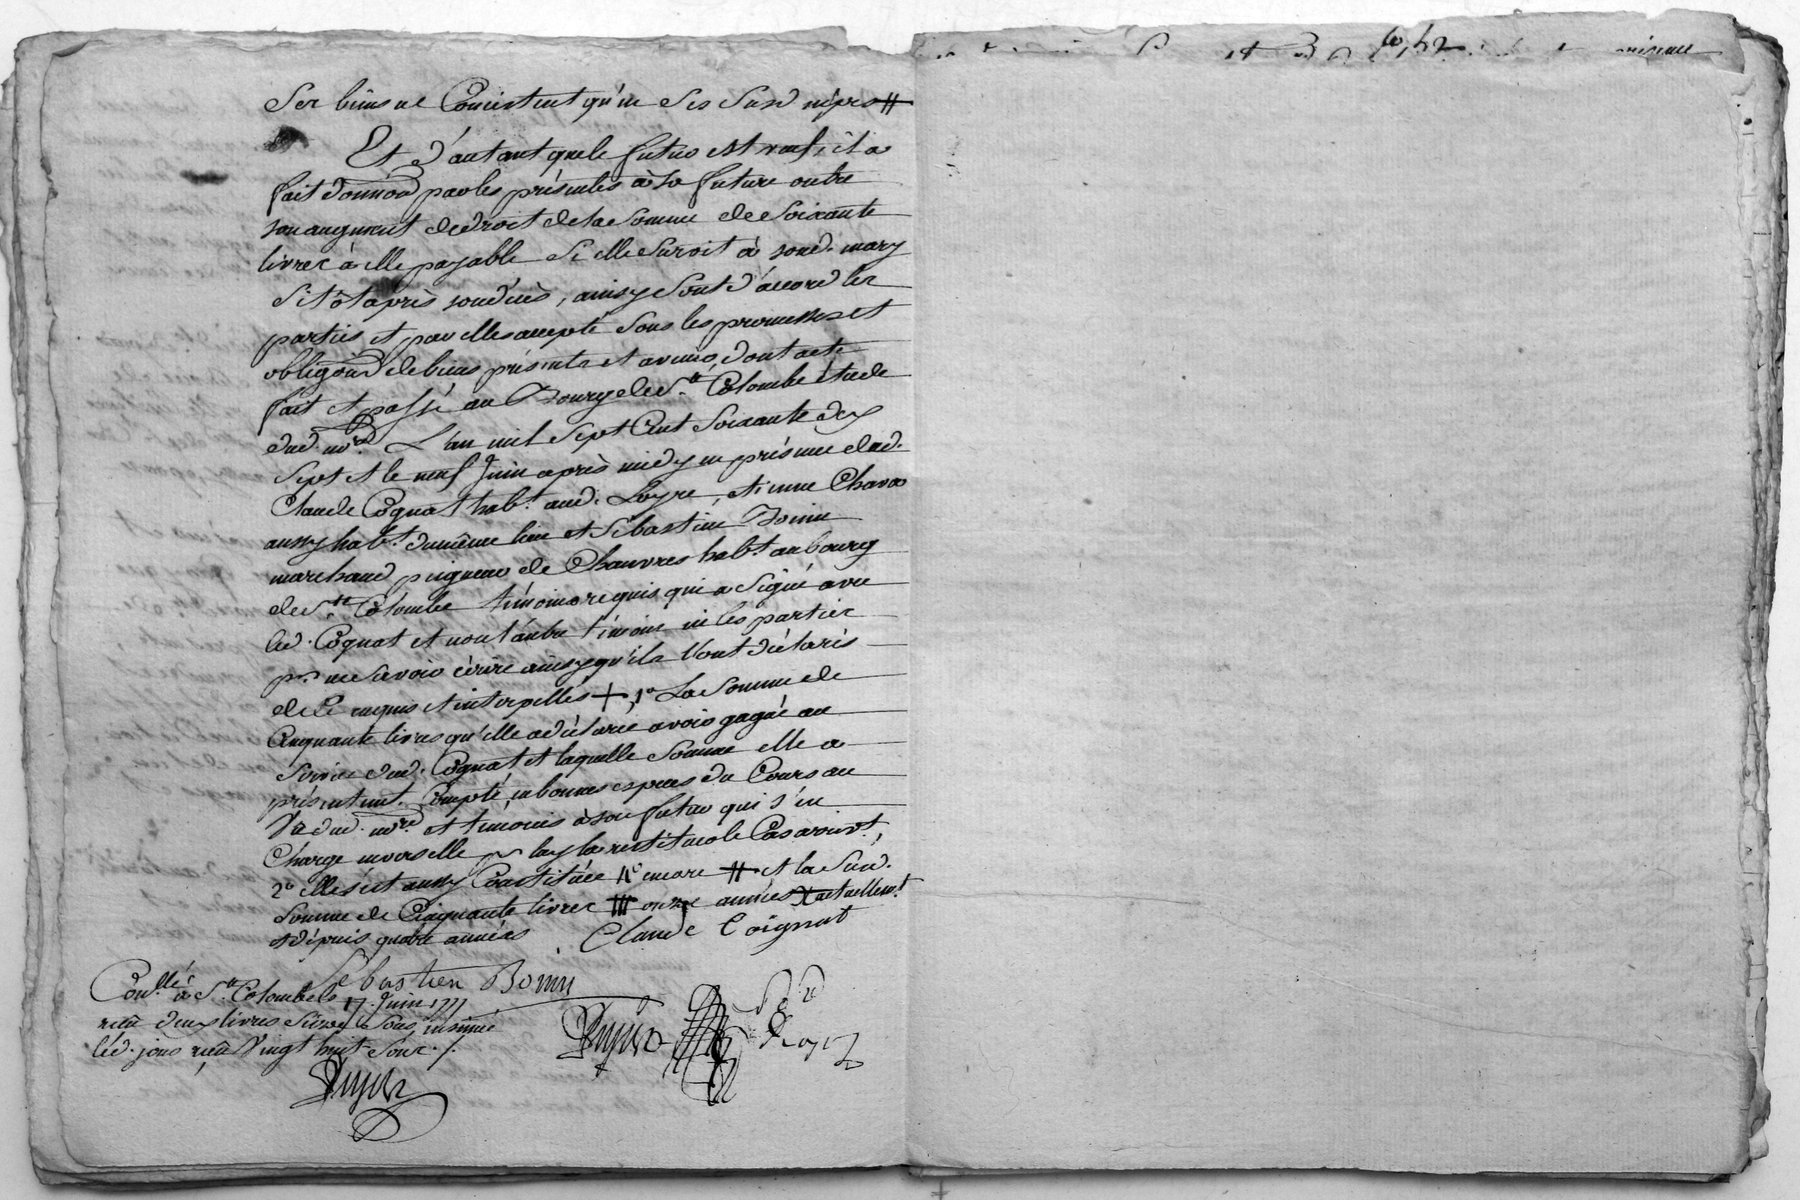 Ses biens ne Consistent qu'en ses susd nipes #
Et d'autant que le futur est veuf, il a
fait donnaon par les présentes à sa future outre
son augment de droit de la Somme de Soixante
livres à elle payable si elle survit à sond. mary
Sitôt après son déces, ainsy sont d'accord les
parties et par elles accepté sous les promesses et
obligaons de biens présents et avenir dont acte
fait et passé au Bourg de Ste Colombe étude
dud. nore L'an mil Sept Cent Soixante dix
Sept et le neuf Juin après midy en présence dud.
Claude Cognat habt. aud. Loyre, etienne Chavo
aussy habt. du même lieu et Sébastien Bonin
marchand peigneur de Chanvres habt. au bourg
de Ste Colombe témoins requis qui a Signé avec
led. Cognat et non l'autre témoins ni les parties
pr. ne Savoir écrire ainsy qu'ils l'ont déclarés
de ce enquis et interpellés + 1o La Somme de
Cinquante livres qu'elle a déclaré avoir gagné au
Service dud. Cognat et laquelle Somme elle a
présentemt. Compté, en bonnes espèces du Cours au
Vu dud. nore et témoins à son futur qui s'en
Charge envers elle pr luy la restituer le Cas arrivt.,
2o elle s'est aussy Constituée 4o encore # et la Susd.
Somme de Cinquante livres onze années actuellemt
et dépuis quatre années Claude Coignat
Sébastien Bonin
Conllé à Ste Colombe le 17 Juin 1777
reçu deux livres Seize Sous, insinué
led. jour reçu Vingt huit Sous ./.